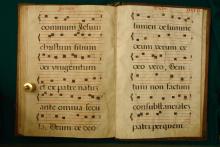 dominum Jesum
christum filium
dei unigenitum
et ex patre natũ
ante omnia secu
la. Deum de deo
lumen de lumine
deum verum de
deo vero. Geni
tum non factum
patri per quem